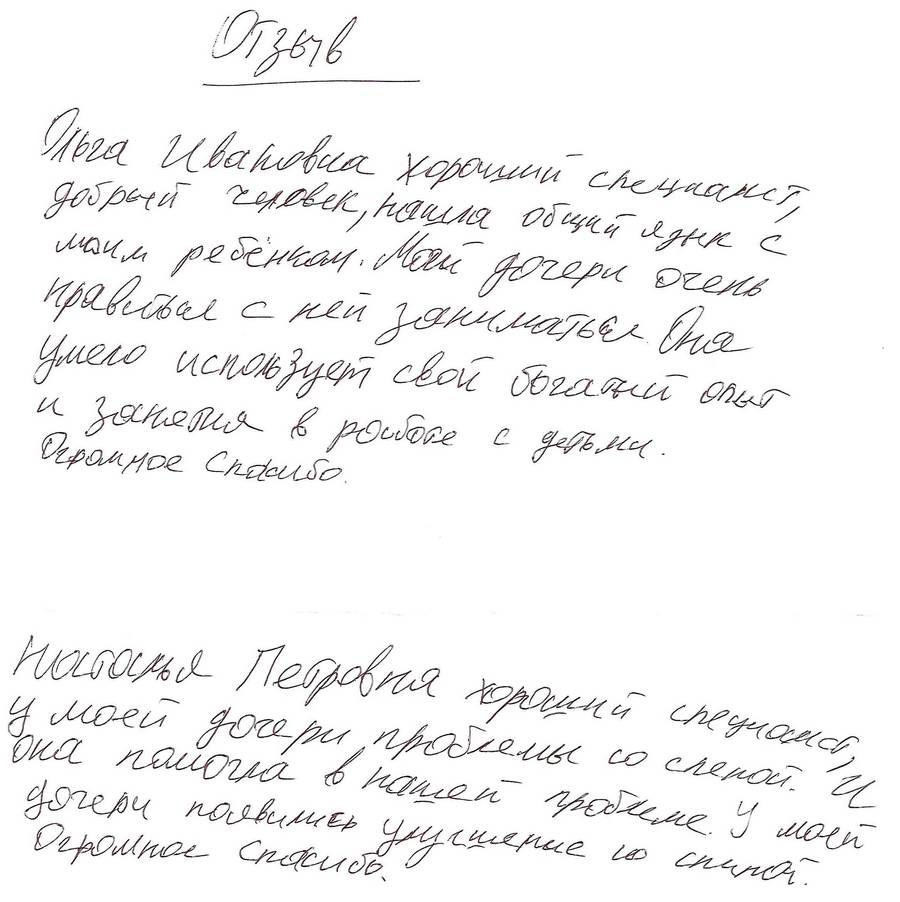 Отзыв
Ольга Ивановна хороший специалист,
добрый человек, нашла общий язык с
моим ребёнком. Моей дочери очень
нравиться с ней заниматься. Она
умело использует свой богатый опыт
и занятия в работе с детьми.
Огромное Спасибо.
Наталья Петровна хороший специалист,
у моей дочери проблемы со спиной. И
она помогла в нашей проблеме. У моей
дочери появились улучшение со спиной.
Огромное Спасибо.